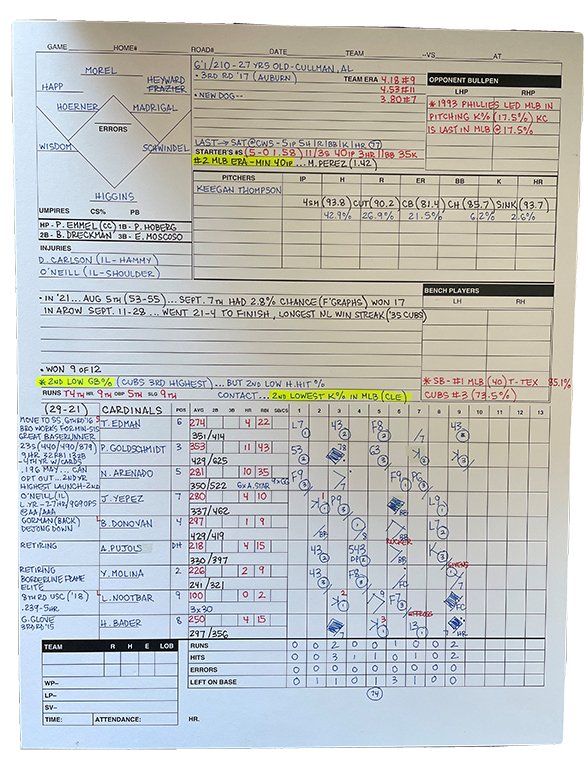 GAME HOME# ROAD# DATE TEAM VS AT
MOREL
HAPP
HEYWARD
FRAZIER
HOERNER
MADRIGAL
ERRORS
WISDOM
SCHWINDEL
HIGGINS
UMPIRES CS% PB
HP - P. EMMEL (CC) 1B - P. HOBERG
2B - B. DRECKMAN 3B - E. MOSCOSO
INJURIES
D. CARLSON (IL - HAMMY)
O'NEILL (IL - SHOULDER)
6'1/210 - 27 YRS OLD - CULLMAN, AL
• 3RD RD '17 (AUBURN)
TEAM ERA 4.18 #9
4.53 #11
3.80 #7
• NEW DOG--
LAST → SAT @CWS - 5IP 5H 1R 1BB 1K 1HR (77)
STARTER'S #S (5-0 1.58) 11/3S 40IP 3HR 11BB 35K
#2 MLB ERA - MIN 40IP ... M. PEREZ (1.42)
OPPONENT BULLPEN
LHP RHP
* 1993 PHILLIES LED MLB IN
PITCHING K% (17.5%) KC
IS LAST IN MLB @ 17.5%
PITCHERS IP H R ER BB K HR
KEEGAN THOMPSON
4SM (93.8) CUT (90.2) CB (81.4) CH (85.7) SINK (93.7)
42.9% 26.9% 21.5% 6.2% 2.6%
• IN '21 ... AUG 5TH (53-55) ... SEPT. 7TH HAD 2.8% CHANCE (F'GRAPHS) WON 17
IN A ROW SEPT. 11-28 ... WENT 21-4 TO FINISH, LONGEST NL WIN STREAK ('35 CUBS)
• WON 9 OF 12
* 2ND LOW GB% (CUBS 3RD HIGHEST) ... BUT 2ND LOW H.HIT %
RUNS T4TH HR 9TH OBP 5TH SLG 9TH CONTACT ... 2ND LOWEST K% IN MLB (CLE)
BENCH PLAYERS
LH RH
* SB - #1 MLB (40) T-TEX 85.1%
CUBS #3 (73.5%)
(29-21) CARDINALS POS AVG 2B 3B HR RBI SB/CS 1 2 3 4 5 6 7 8 9 10 11 12 13
T. EDMAN 6 274 4 22
351/414
P. GOLDSCHMIDT 3 353 11 43
429/625
N. ARENADO 5 281 10 35
350/522 6X A.STAR
J. YEPEZ 7 280 4 10
337/462
B. DONOVAN 4 297 1 9
429/419
A. PUJOLS DH 218 4 15
330/397
Y. MOLINA 2 226 2 9
241/321
L. NOOTBAR 9 100 0 2
3x30
H. BADER 8 250 4 15
297/356
GREAT BASERUNNER
235 (440/490/879)
9HR 32RBI 13 2B
.196 MAY ... CAN
OPT OUT ... 2ND YR
HIGHEST LAUNCH - 2ND
O'NEILL (IL)
@AA/AAA
GORMAN (BACK)
DEJONG DOWN
RETIRING
RETIRING
BORDERLINE FRAME
ELITE
8TH RD USC ('18)
.239 - 5HR
G. GLOVE
3RD RD '15
RUCKER
GIVENS
EFFROSS
RUNS 0 0 2 0 0 1 0 0 2
HITS 0 0 3 1 1 0 1 0 2
ERRORS 0 0 0 0 0 0 0 0 0
LEFT ON BASE 0 1 1 0 1 3 1 0 0
74
TEAM R H E LOB
WP–
LP–
SV–
TIME: ATTENDANCE: HR.